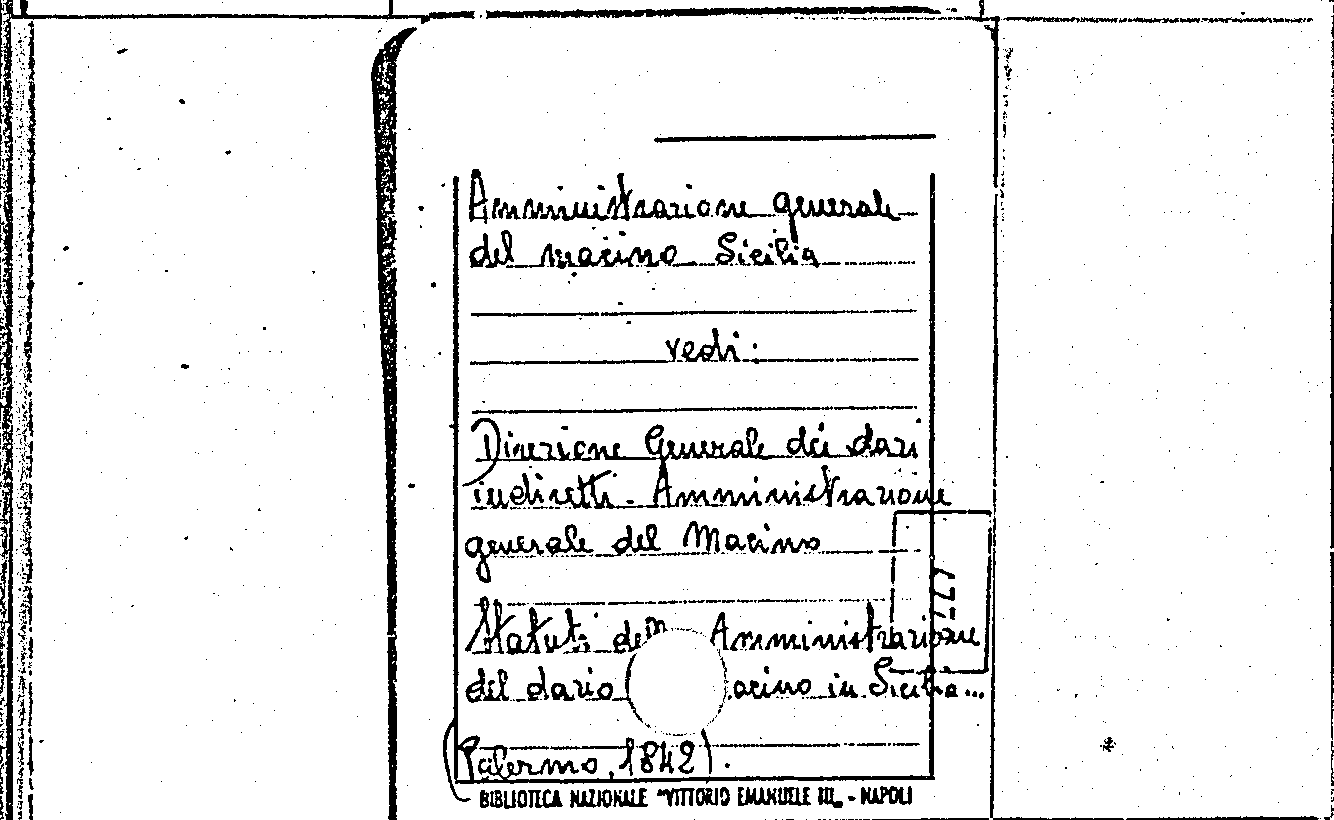 Amministrazione generale
del macino Sicilia
vedi:
Direzione Generale dei dazi
indiretti - Amministrazione
generale del Macino
Statuti dell Amministrazione
del dazio acino in Sicilia...
(Palermo, 1842).
BIBLIOTECA NAZIONALE "VITTORIO EMANUELE III„ - NAPOLI